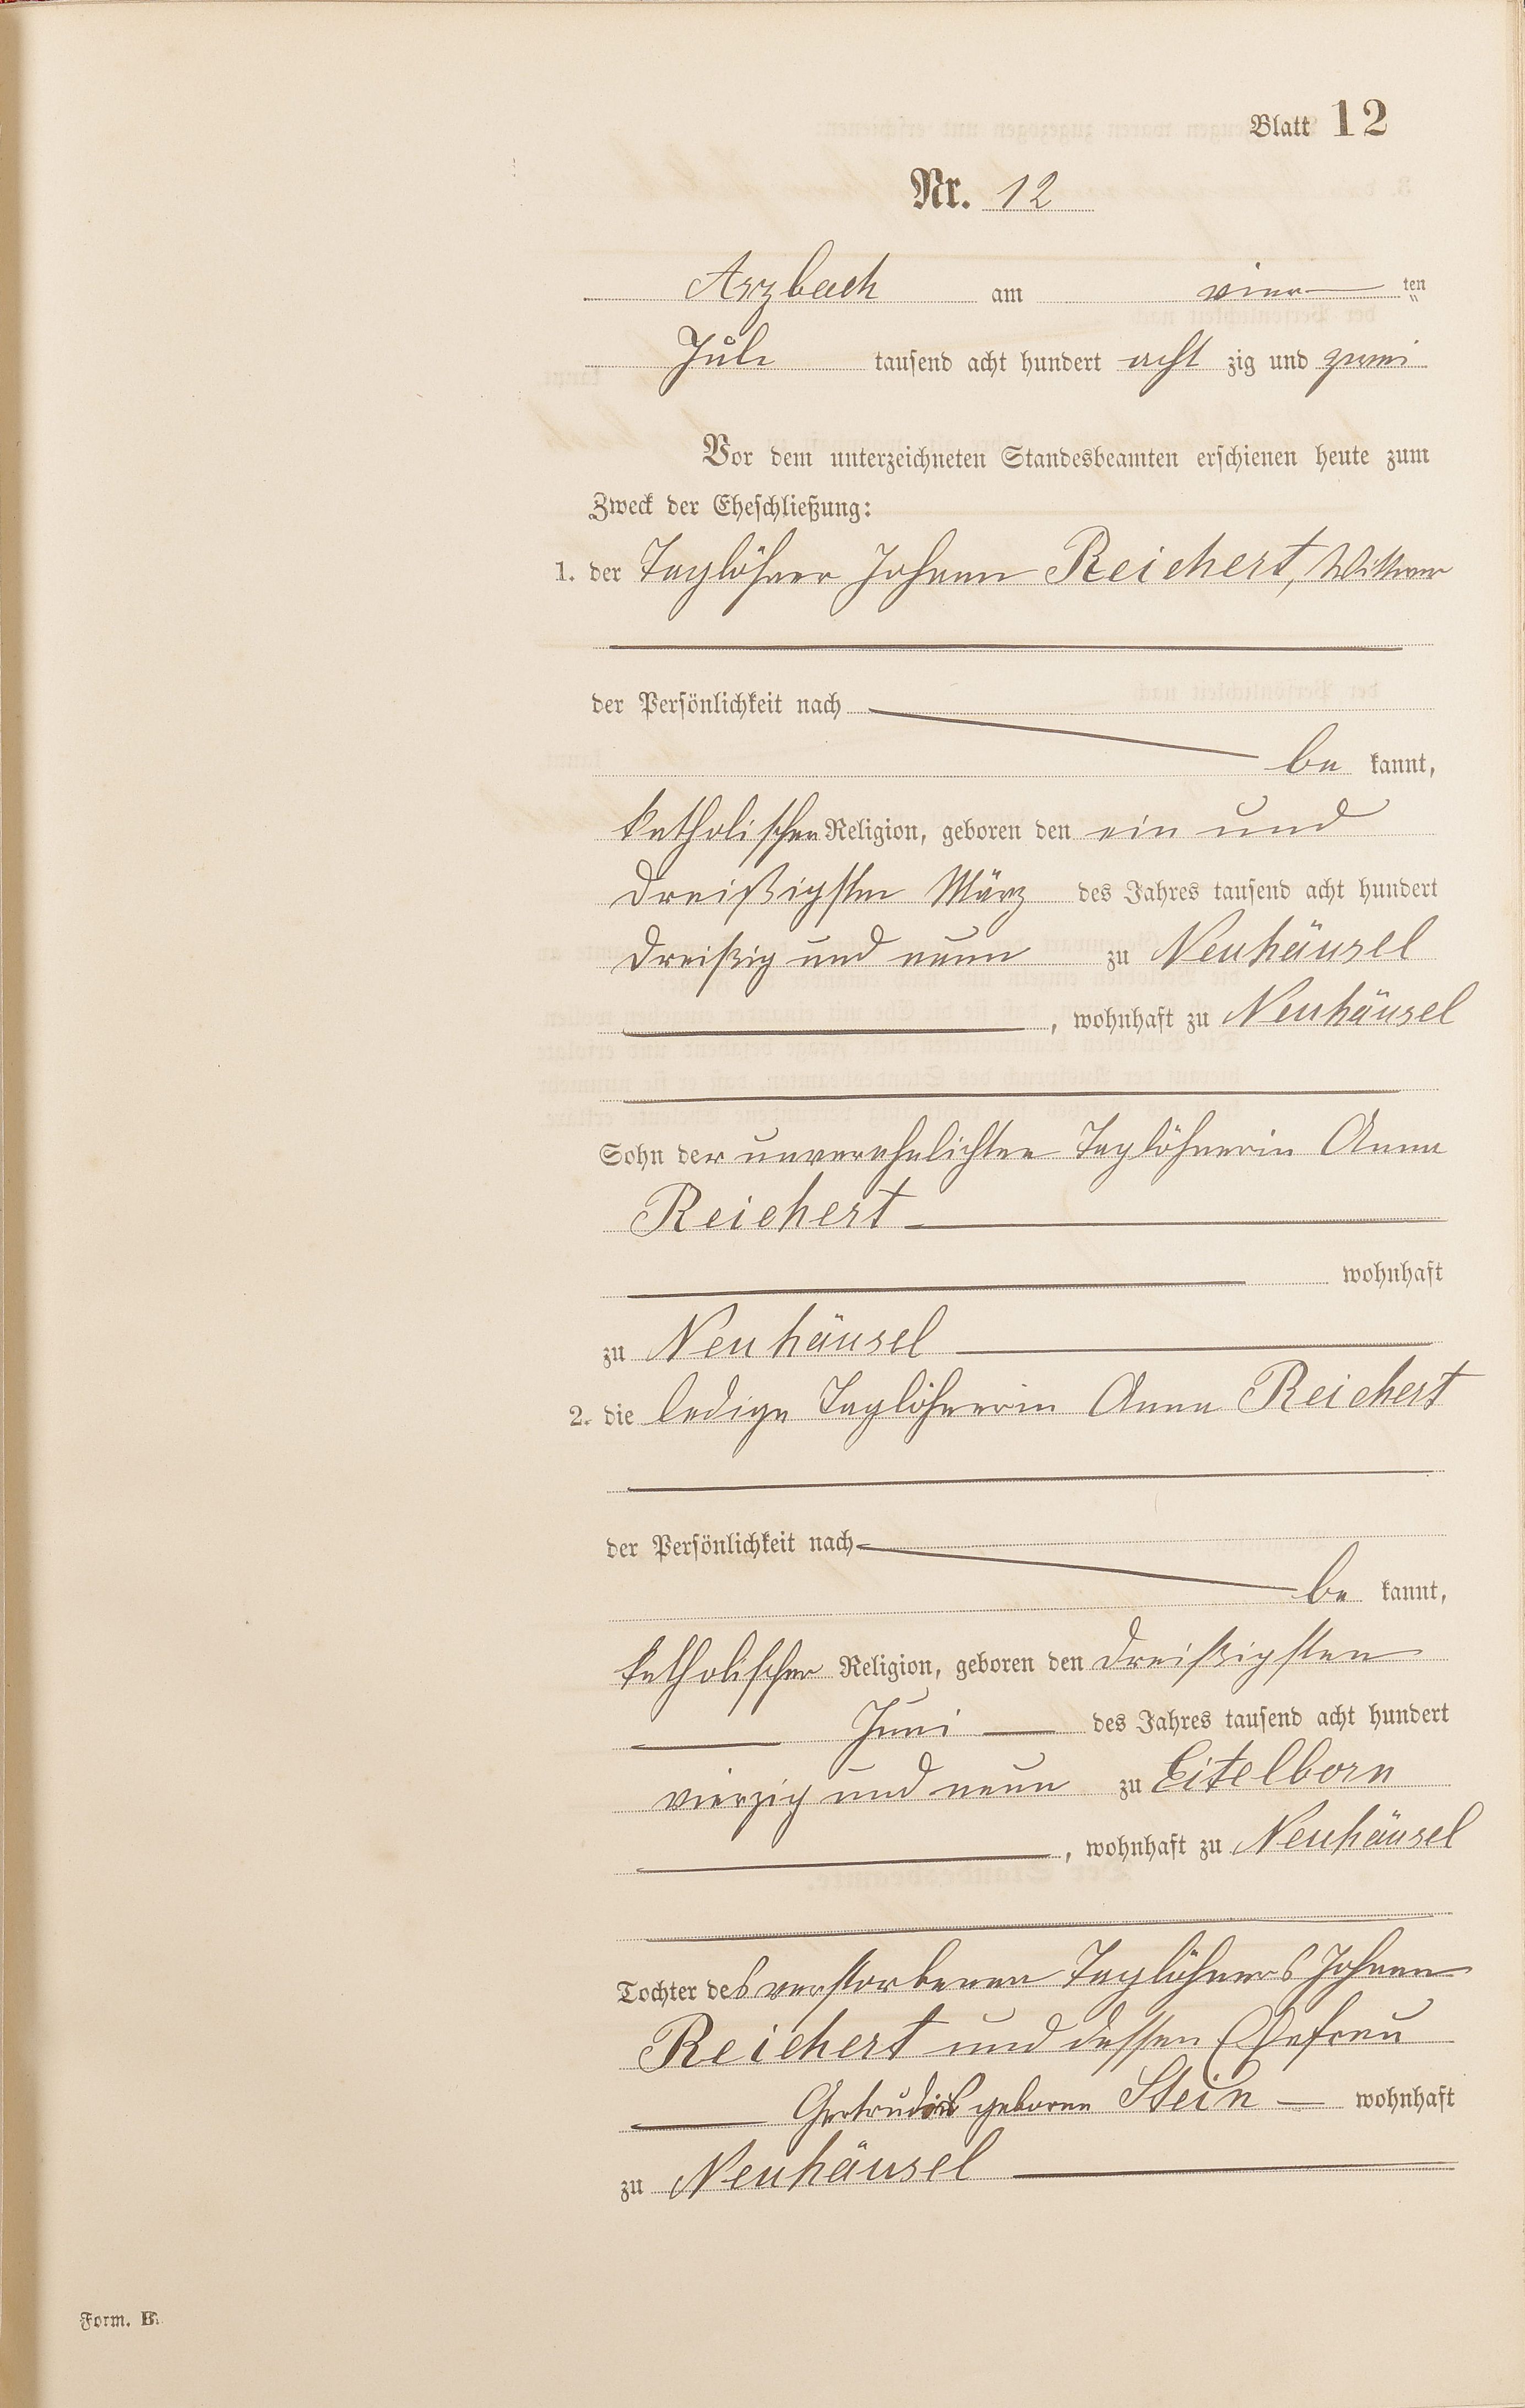 Blatt 12
Nr. 12
Arzbach am vier ten
Juli tausend acht hundert acht zig und zwei
Vor dem unterzeichneten Standesbeamten erschienen heute zum
Zweck der Eheschließung:
1. der Taglöhner Johann Reichert, Wittwer
der Persönlichkeit nach
be kannt,
katholischer Religion, geboren den ein und
dreißigsten März des Jahres tausend acht hundert
dreißig und neun zu Neuhäusel
, wohnhaft zu Neuhäusel
Sohn der unverehelichten Taglöhnerin Anna
Reichert
wohnhaft
zu Neuhäusel
2. die ledige Taglöhnerin Anna Reichert
der Persönlichkeit nach
be kannt,
katholischer Religion, geboren den dreißigsten
Juni des Jahres tausend acht hundert
vierzig und neun zu Eitelborn
, wohnhaft zu Neuhäusel
Tochter des verstorbenen Taglöhners Johann
Reichert und dessen Ehefrau
Gertrudis geborne Stein wohnhaft
zu Neuhäusel
Form. B.